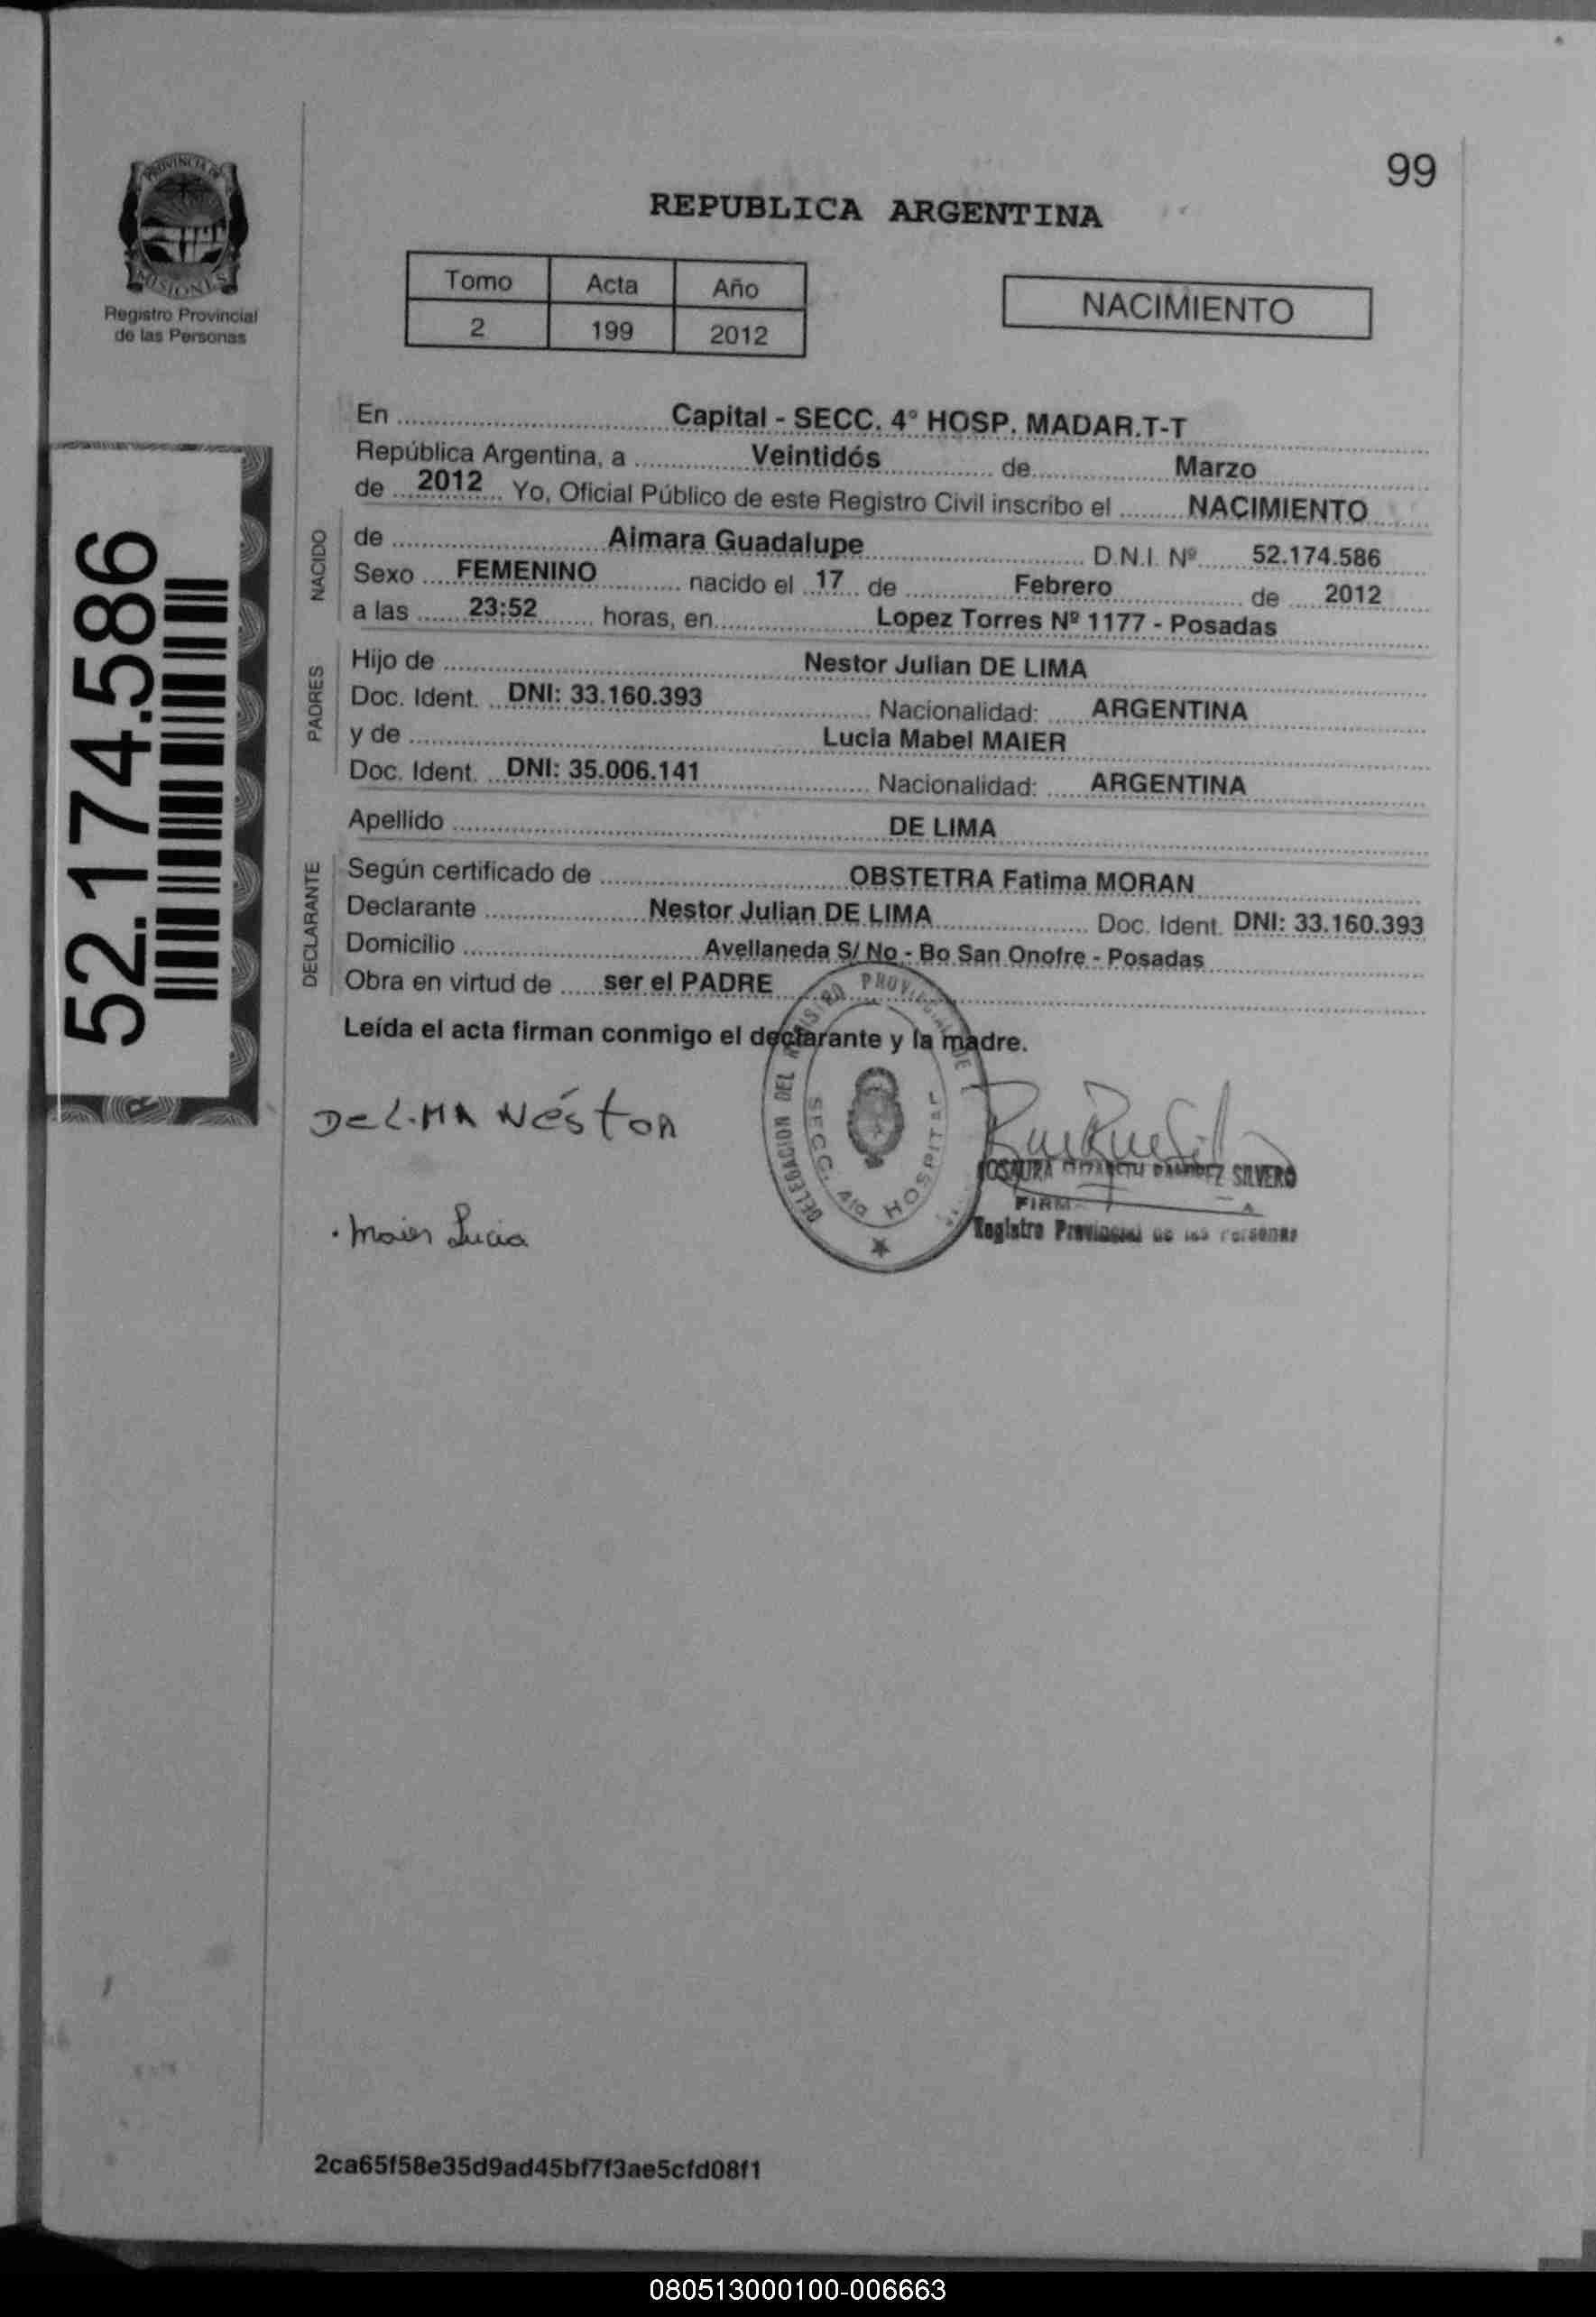 PROVINCIA DE
MISIONES
Registro Provincial
de las Personas
99
REPUBLICA ARGENTINA
Tomo Acta Año
2 199 2012
NACIMIENTO
52.174.586
En Capital - SECC. 4° HOSP. MADAR.T-T
República Argentina, a Veintidós de Marzo
de 2012 Yo, Oficial Público de este Registro Civil inscribo el NACIMIENTO
NACIDO
de Aimara Guadalupe D.N.I. Nº 52.174.586
Sexo FEMENINO nacido el 17 de Febrero de 2012
a las 23:52 horas, en Lopez Torres Nº 1177 - Posadas
PADRES
Hijo de Nestor Julian DE LIMA
Doc. Ident. DNI: 33.160.393 Nacionalidad: ARGENTINA
y de Lucia Mabel MAIER
Doc. Ident. DNI: 35.006.141 Nacionalidad: ARGENTINA
Apellido DE LIMA
DECLARANTE
Según certificado de OBSTETRA Fatima MORAN
Declarante Nestor Julian DE LIMA Doc. Ident. DNI: 33.160.393
Domicilio Avellaneda S/ No - Bo San Onofre - Posadas
Obra en virtud de ser el PADRE
Leída el acta firman conmigo el declarante y la madre.
DELEGACION DEL REGISTRO PROVINCIAL DE
SECC. 4ta HOSPITAL
De LiMA Néstor
Maier Lucia
SILVERO
Registro Provincial de las Personas
2ca65f58e35d9ad45bf7f3ae5cfd08f1
080513000100-006663